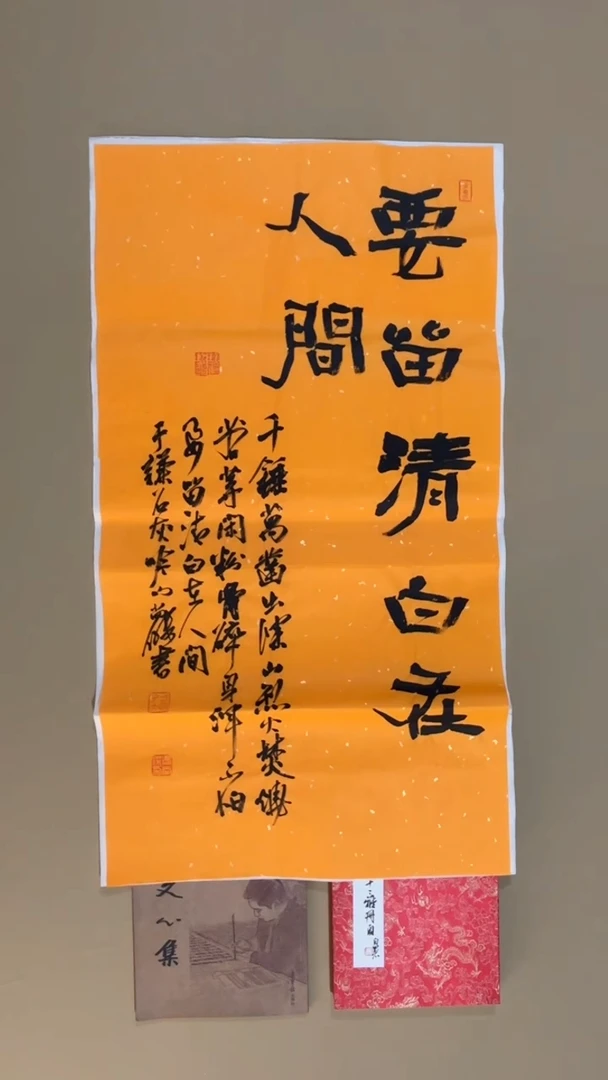 要留清白在
人間
千錘萬鑿出深山烈火焚燒
若等閑粉骨碎身渾不怕
要留清白在人间
于謙石灰吟 書
文心集
十三